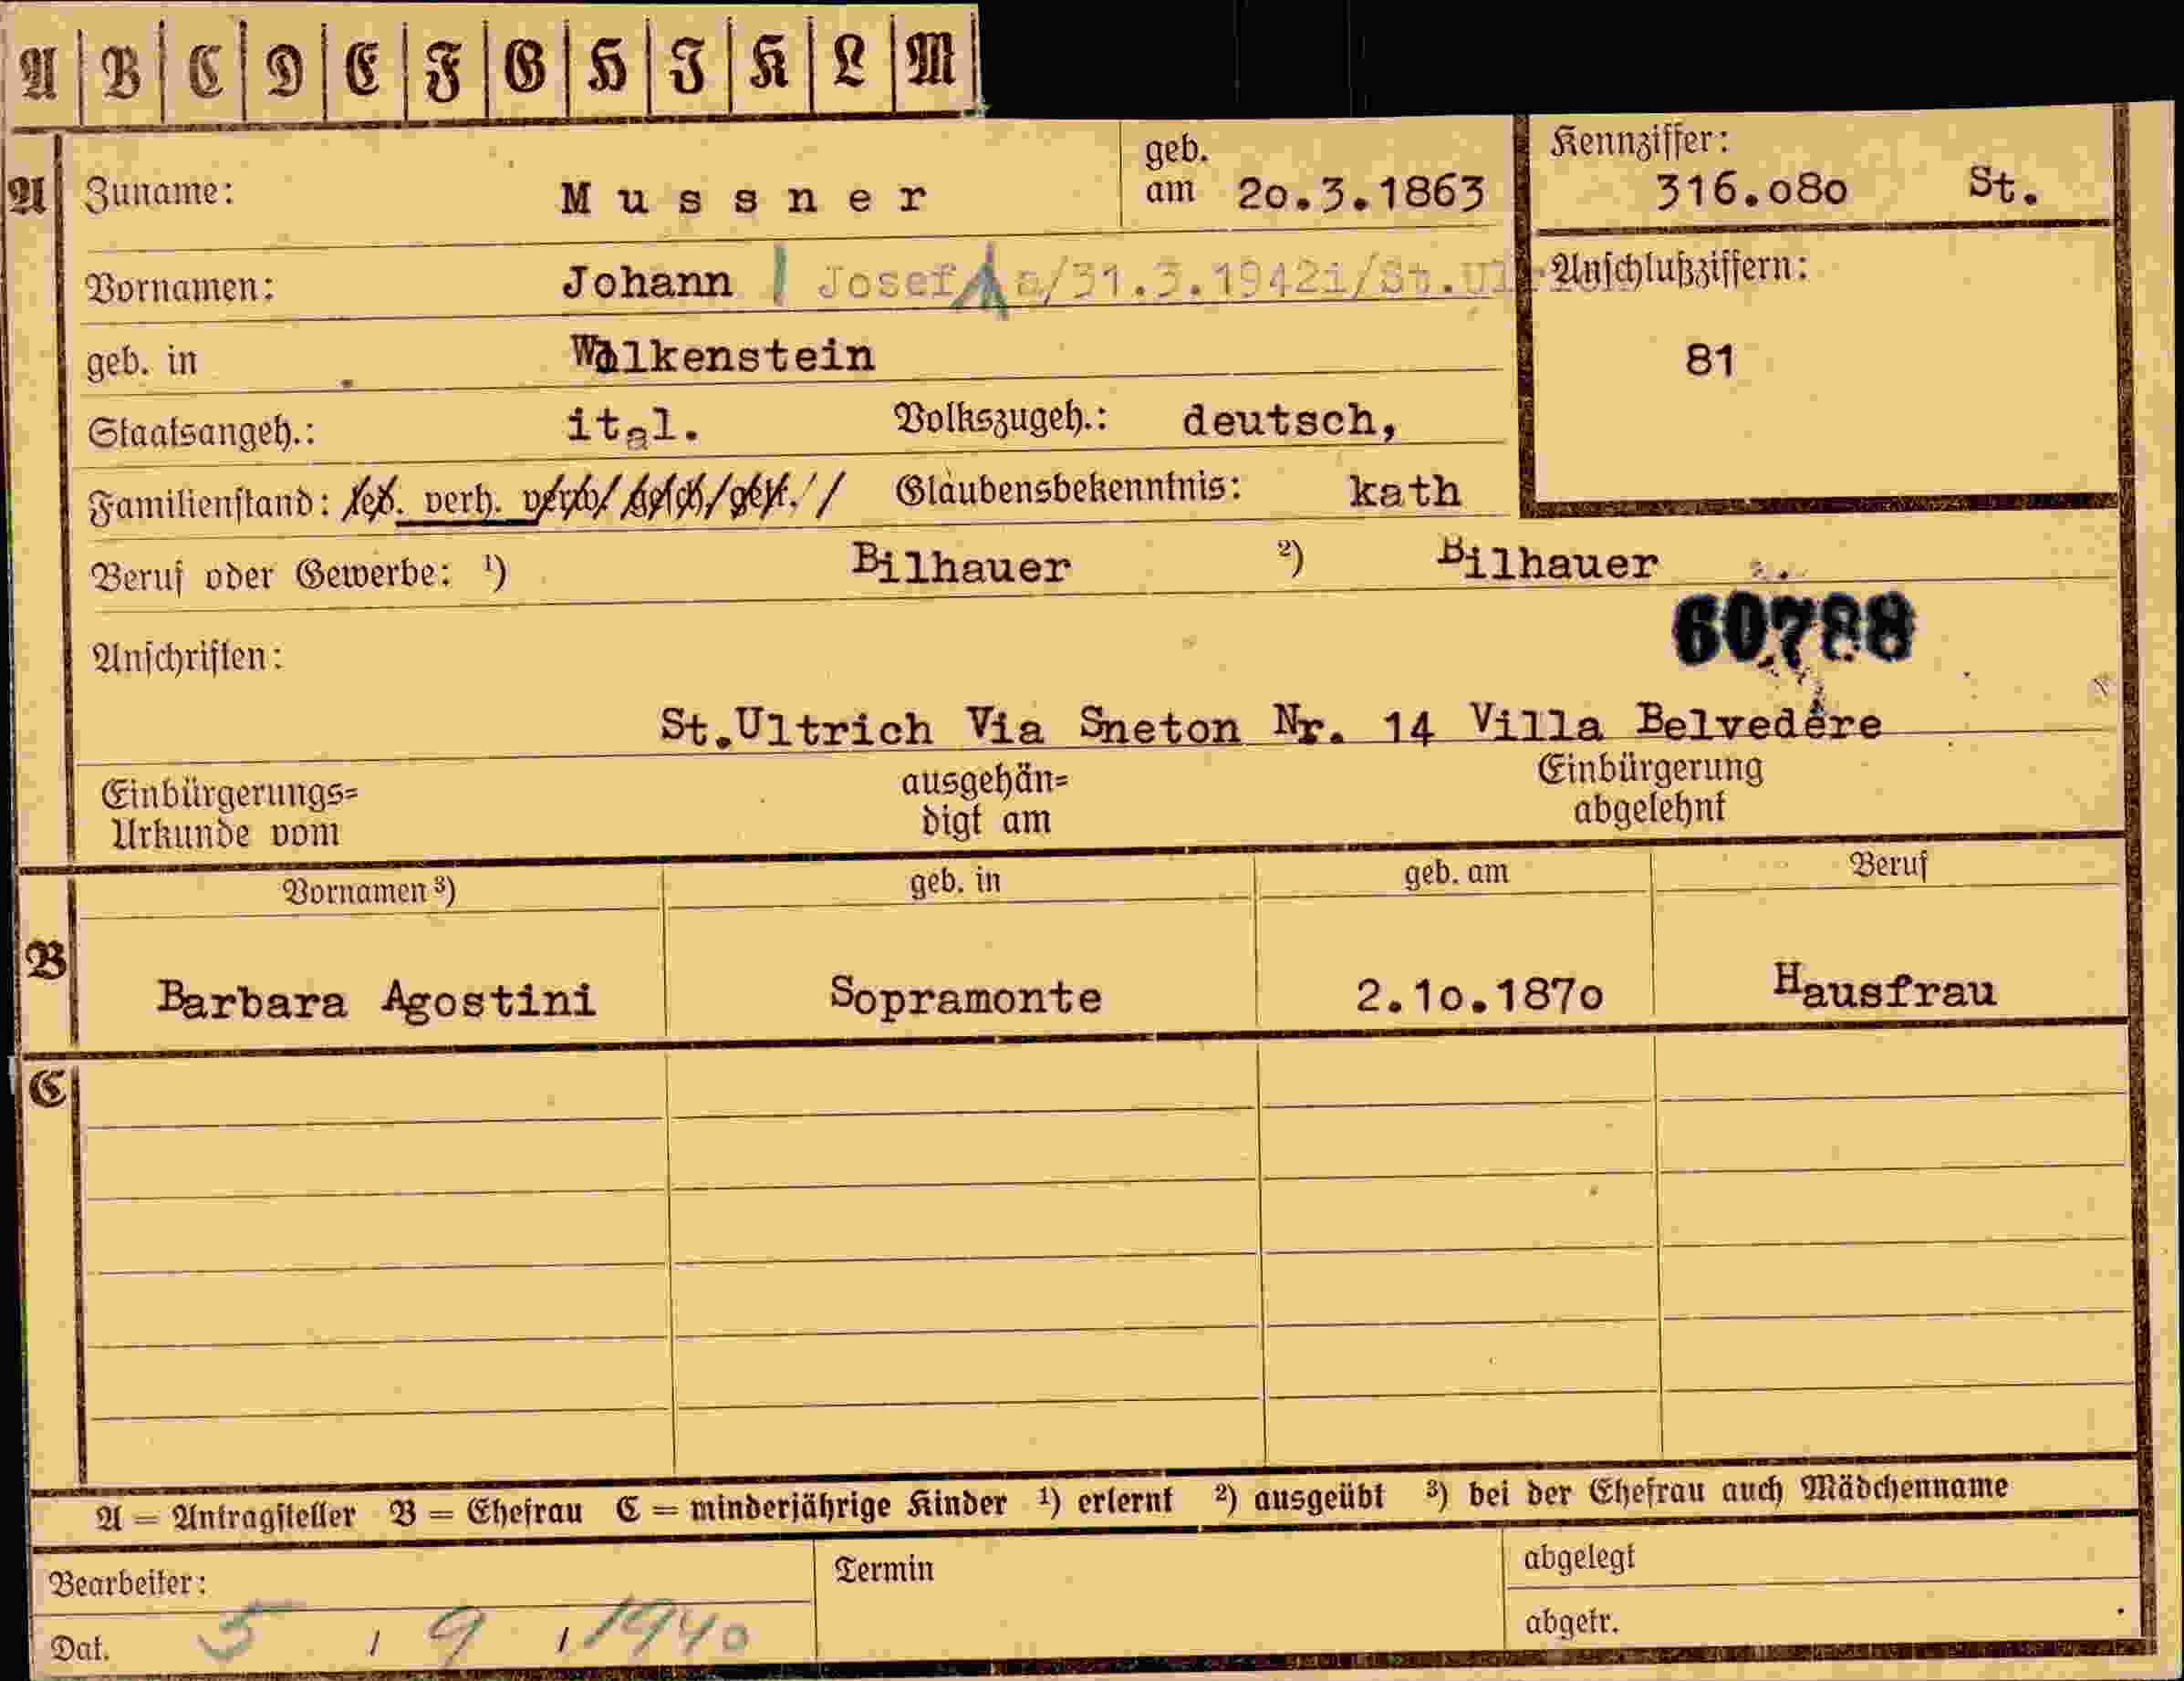 A B C D E F G H I K L M
geb. Kennziffer:
A Zuname: Mussner am 20.3.1863 316.080 St.
Vornamen: Johann / Josef a/31.3.1942i/St.Ul Anschlußziffern:
geb. in Wolkenstein 81
Staatsangeh.: ital. Volkszugeh.: deutsch,
Familienstand: led. verh. verw. gesch. getr. Glaubensbekenntnis: kath
Beruf oder Gewerbe: ¹) Bilhauer ²) Bilhauer
60788
Anschriften:
St.Ultrich Via Sneton Nr. 14 Villa Belvedere
Einbürgerungs= ausgehän= Einbürgerung
Urkunde vom digt am abgelehnt
Vornamen ³) geb. in geb. am Beruf
B
Barbara Agostini Sopramonte 2.10.1870 Hausfrau
C
A = Antragsteller B = Ehefrau C = minderjährige Kinder ¹) erlernt ²) ausgeübt ³) bei der Ehefrau auch Mädchenname
Bearbeiter: Termin abgelegt
Dat. 5 / 9 / 1940 abgetr.